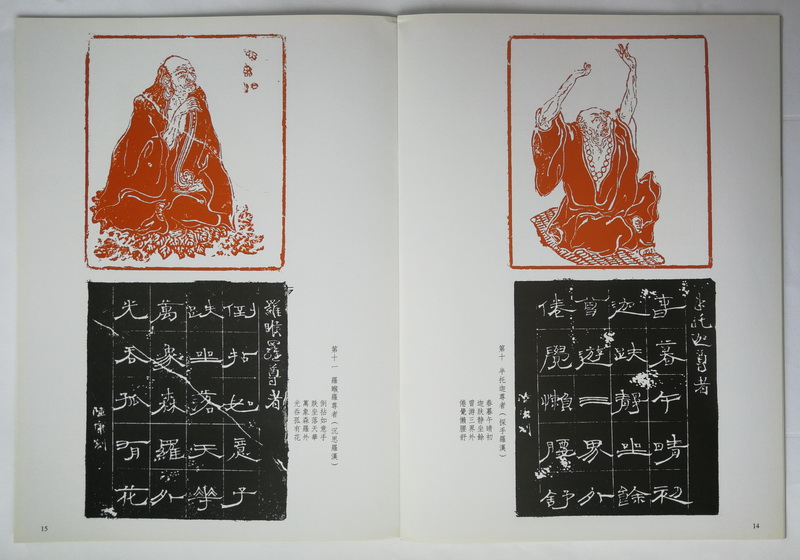 半托迦尊者
春暮午晴初
迦趺靜坐餘
曾遊三界外
倦覺懶腰舒
第十 半托迦尊者(探手羅漢)
春暮午晴初
迦趺靜坐餘
曾游三界外
倦覺懶腰舒
14
第十一 羅睺羅尊者(沉思羅漢)
倒拈如意子
趺坐落天華
萬象森羅外
光吞孤有花
羅睺羅尊者
倒拈如意子
趺坐落天華
萬象森羅外
光吞孤有花
15